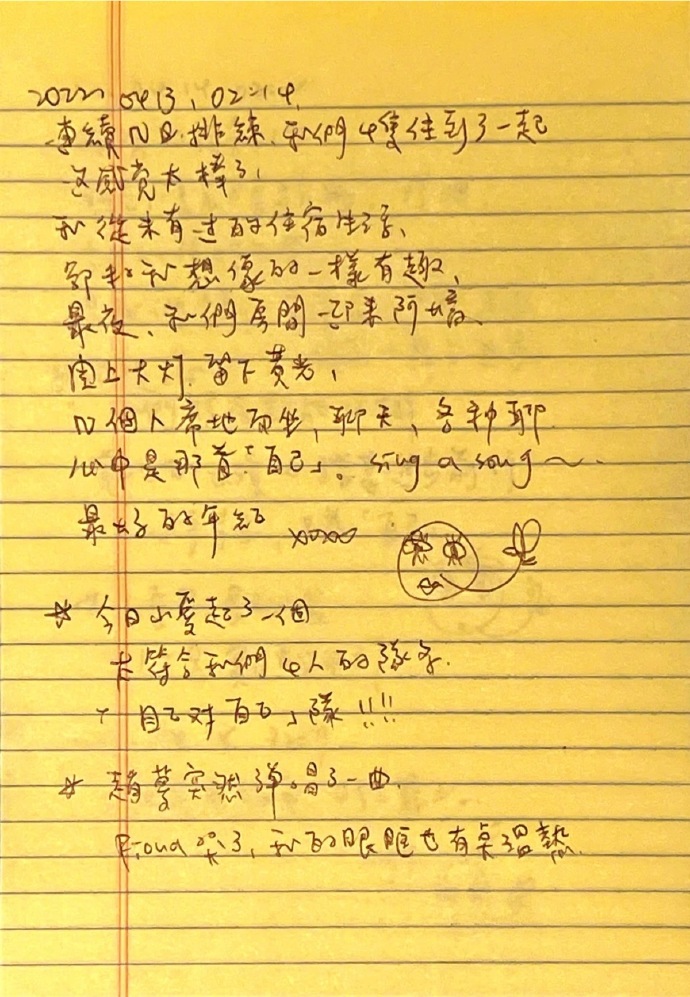 2022 0413, 02:14.
連續几日排練,我們4隻住到了一起
这感觉太棒了,
我從未有过的住宿生活,
都和我想像的一樣有趣,
最夜,我們房間一起来阿
關上大灯,留下黄光,
几個人席地而坐,聊天,各种聊
心中是那首「自己」。sing a song~
最好的年紀 xoxo
☆ 今日小愛起了一個
太符合我們4人的隊名.
「自己对自己」隊!!!
☆ 趙夢突然弹唱了一曲.
哭了,我的眼眶也有桌溫熱.